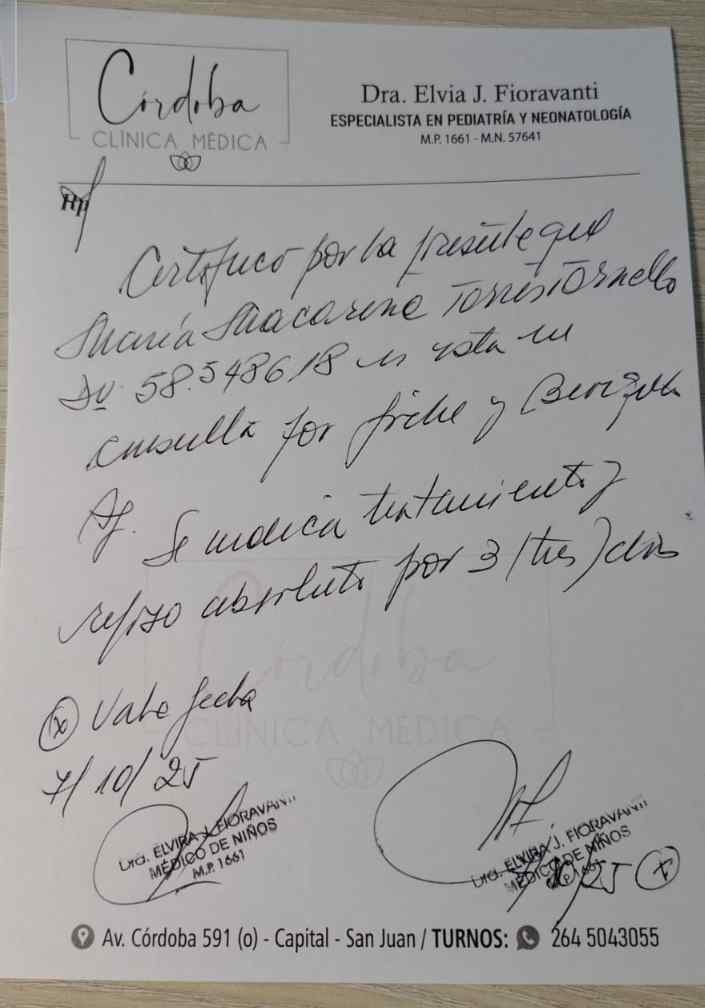 Córdoba
CLÍNICA MÉDICA
Dra. Elvia J. Fioravanti
ESPECIALISTA EN PEDIATRÍA Y NEONATOLOGÍA
M.P. 1661 - M.N. 57641
Rp
Certifico por la presente que
María Macarena Torres Tornello
DU 58.548618 es vista en
consulta por fiebre y
Af. Se indica tratamiento y
reposo absoluto por 3 (tres) días
(x) Vale fecha
7/10/25
Dra. ELVIRA J. FIORAVANTI
MÉDICO DE NIÑOS
M.P. 1661
Dra. ELVIRA J. FIORAVANTI
MÉDICO DE NIÑOS
M.P. 1661
25 (x)
Córdoba
CLÍNICA MÉDICA
Av. Córdoba 591 (o) - Capital - San Juan / TURNOS: 264 5043055